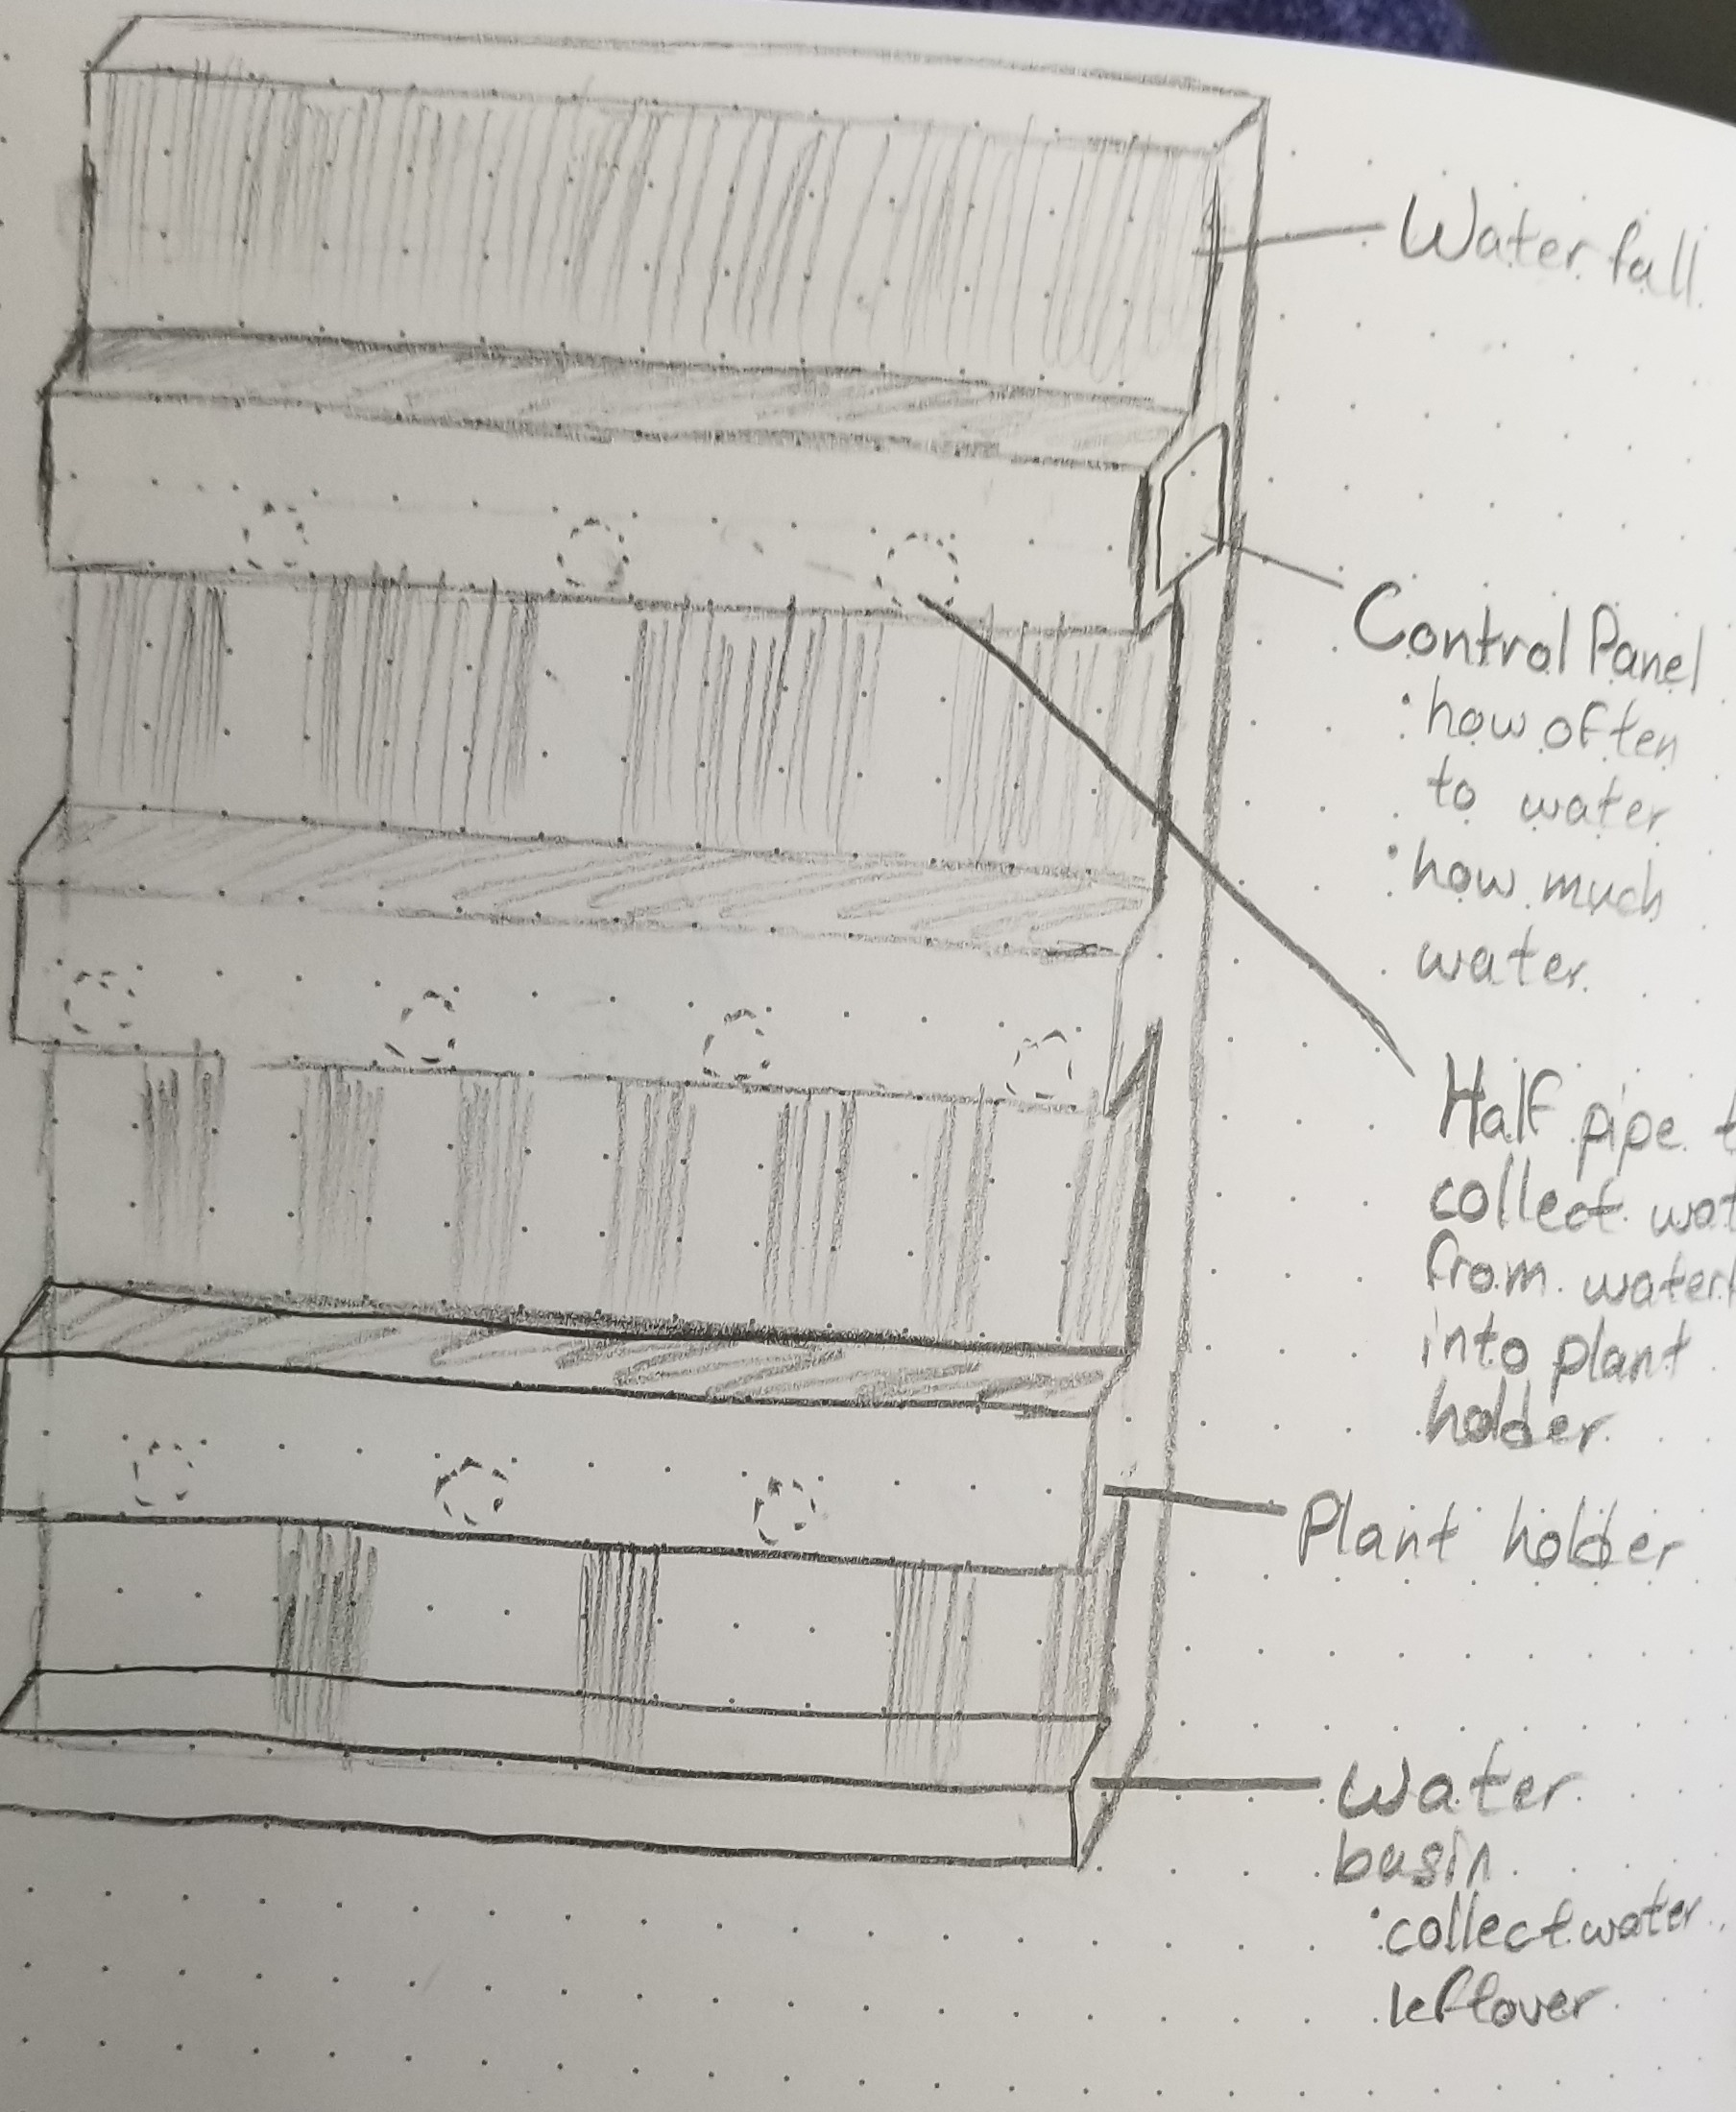 Waterfall
Control Panel
• how often
to water
• how much
water
Half pipe
collect
from
into plant
holder
Plant holder
Water
basin
• collect water
leftover